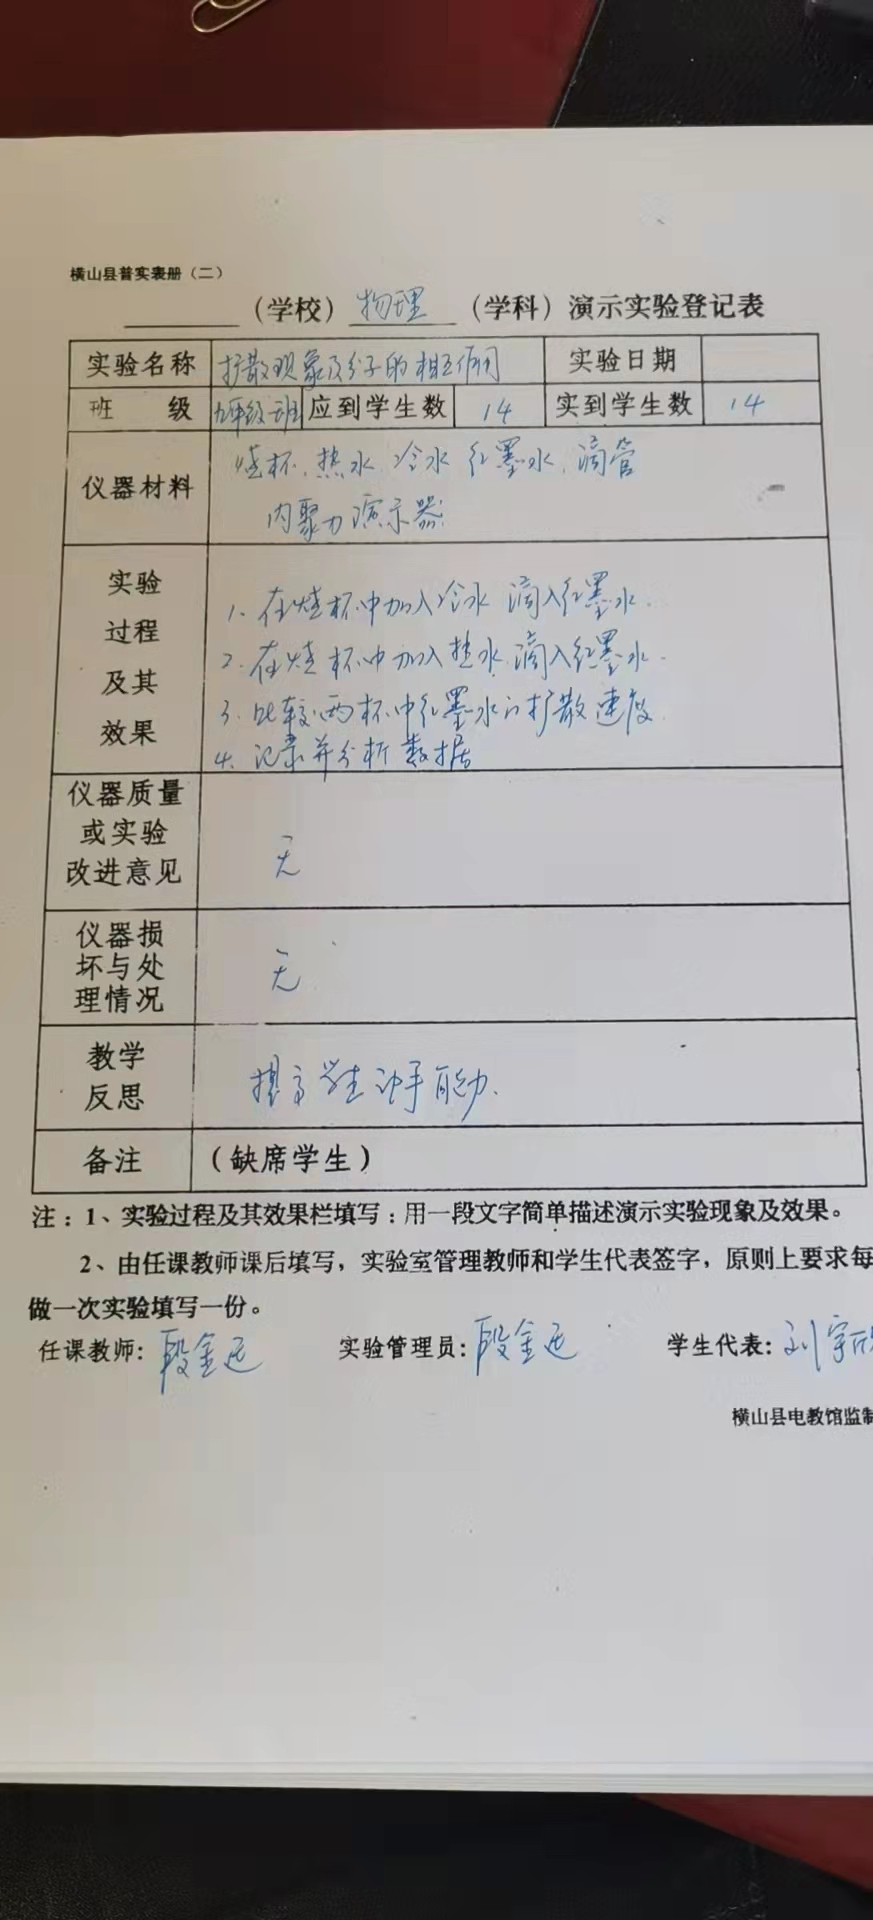 横山县普实表册（二）
（学校）物理（学科）演示实验登记表
实验名称 扩散现象及分子的相互作用 实验日期
班级 九年级一班 应到学生数 14 实到学生数 14
仪器材料 烧杯、热水、冷水 红墨水、滴管
内聚力演示器
实验
过程
及其
效果
1. 在烧杯中加入冷水 滴入红墨水.
2. 在烧杯中加入热水 滴入红墨水.
3. 比较两杯中红墨水的扩散速度.
4. 记录并分析数据
仪器质量
或实验
改进意见
无
仪器损
坏与处
理情况
无
教学
反思
提高学生动手能力.
备注 （缺席学生）
注：1、实验过程及其效果栏填写：用一段文字简单描述演示实验现象及效果。
2、由任课教师课后填写，实验室管理教师和学生代表签字，原则上要求每
做一次实验填写一份。
任课教师：段金运 实验管理员：段金运 学生代表：刘宇欣
横山县电教馆监制